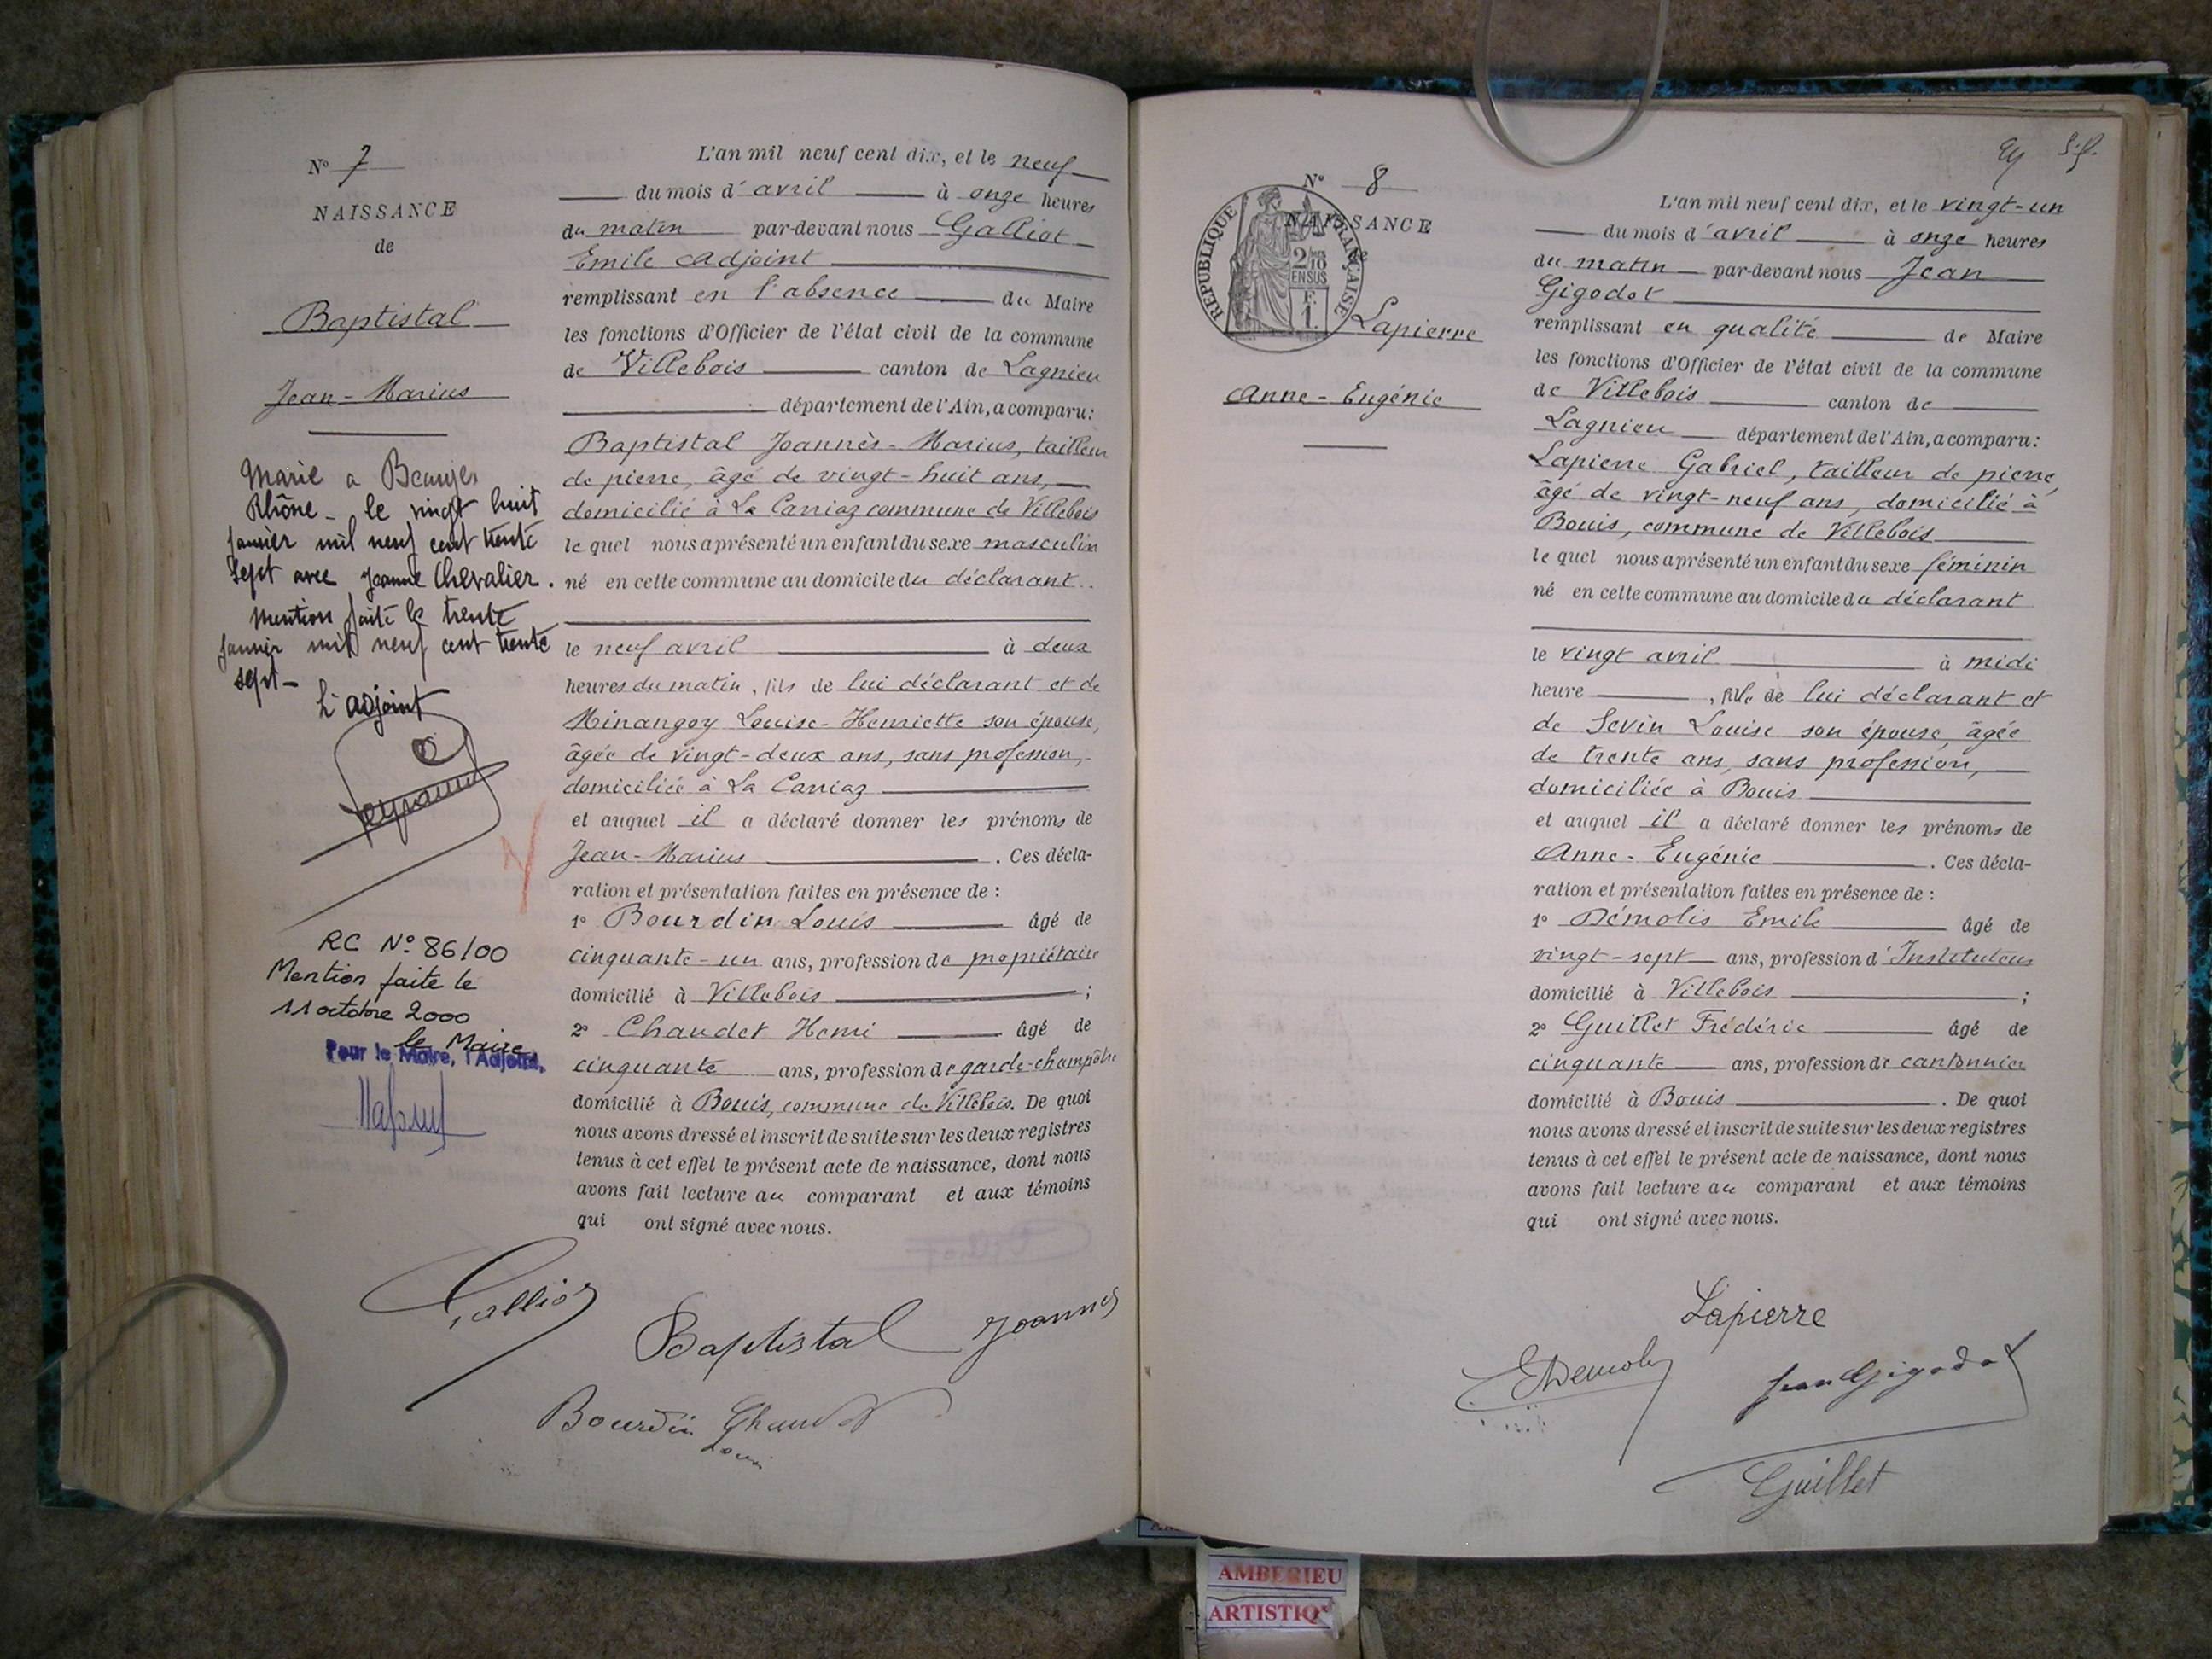 N° 7
NAISSANCE
de
Baptistal
Jean-Marius
Marié a Beaujeu
Rhône _ le vingt huit
janvier mil neuf cent trente
sept avec Jeanne Chevalier.
Mention faite le trente
janvier mil neuf cent trente
sept _
L'adjoint
RC N° 86/00
Mention faite le
11 octobre 2000
le Maire
Pour le Maire, l'Adjoint,
L'an mil neuf cent dix, et le neuf
du mois d'avril à onze heures
du matin par-devant nous Galliot
Emile adjoint
remplissant en l'absence du Maire
les fonctions d'Officier de l'état civil de la commune
de Villebois canton de Lagnieu
département de l'Ain, a comparu:
Baptistal Joannès-Marius, tailleur
de pierre, âgé de vingt-huit ans,
domicilié à La Carriaz commune de Villebois
lequel nous a présenté un enfant du sexe masculin
né en cette commune au domicile du déclarant
le neuf avril à deux
heures du matin, fils de lui déclarant et de
Minangoy Louise-Henriette son épouse,
âgée de vingt-deux ans, sans profession,
domiciliée à La Carriaz
et auquel il a déclaré donner les prénoms de
Jean-Marius. Ces décla-
ration et présentation faites en présence de :
1° Bourdin Louis âgé de
cinquante-un ans, profession de propriétaire
domicilié à Villebois ;
2° Chaudet Henri âgé de
cinquante ans, profession de garde-champêtre
domicilié à Bouis, commune de Villebois. De quoi
nous avons dressé et inscrit de suite sur les deux registres
tenus à cet effet le présent acte de naissance, dont nous
avons fait lecture au comparant et aux témoins
qui ont signé avec nous.
Galliot
Baptistal Joannes
Bourdin Chaudet
Louis
S.P.
N° 8
NAISSANCE
de
RÉPUBLIQUE FRANÇAISE
2/10 EN SUS
F.
1.
Lapierre
Anne-Eugénie
L'an mil neuf cent dix, et le vingt-un
du mois d'avril à onze heures
du matin par-devant nous Jean
Gigodot
remplissant en qualité de Maire
les fonctions d'Officier de l'état civil de la commune
de Villebois canton de
Lagnieu département de l'Ain, a comparu:
Lapierre Gabriel, tailleur de pierre,
âgé de vingt-neuf ans, domicilié à
Bouis, commune de Villebois
lequel nous a présenté un enfant du sexe féminin
né en cette commune au domicile du déclarant
le vingt avril à midi
heure, fille de lui déclarant et
de Sevin Louise son épouse, âgée
de trente ans, sans profession,
domiciliée à Bouis
et auquel il a déclaré donner les prénoms de
Anne-Eugénie. Ces décla-
ration et présentation faites en présence de :
1° Démolis Emile âgé de
vingt-sept ans, profession d'Instituteur
domicilié à Villebois ;
2° Guillet Frédéric âgé de
cinquante ans, profession de cantonnier
domicilié à Bouis. De quoi
nous avons dressé et inscrit de suite sur les deux registres
tenus à cet effet le présent acte de naissance, dont nous
avons fait lecture au comparant et aux témoins
qui ont signé avec nous.
Lapierre
E Demolis
Jean Gigodot
Guillet
AMBERIEU
ARTISTIQ